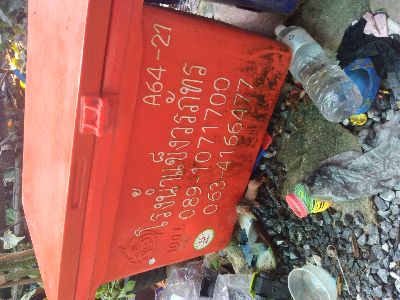 A64-21
โรงน้ำแข็งวรภัทร
100 L
089-1071700
063-4166477